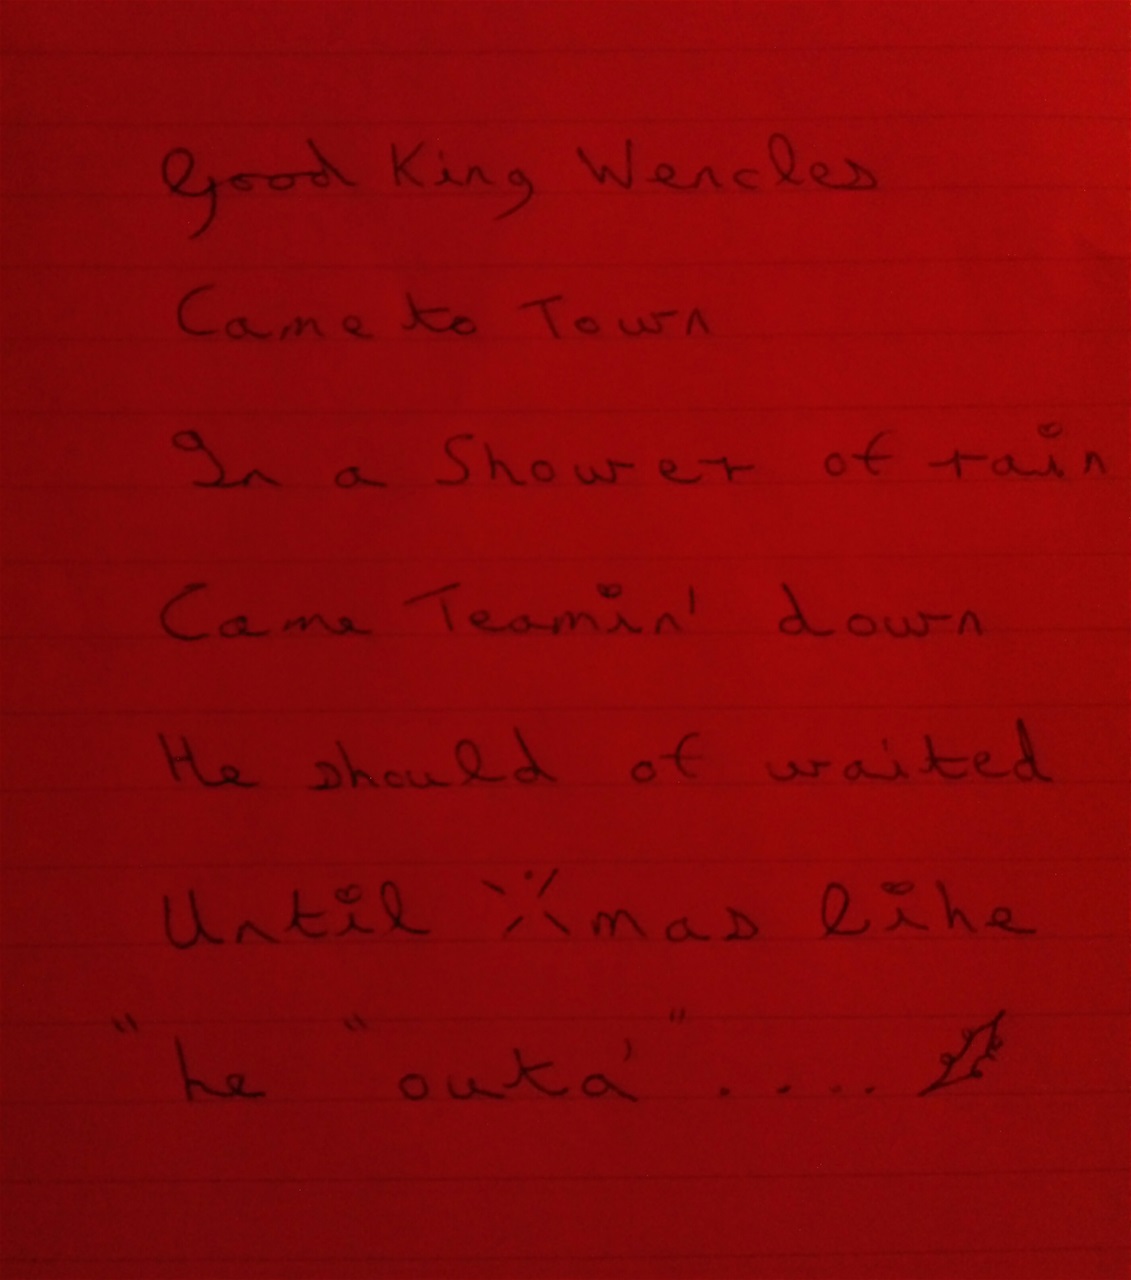 Good King Wencles
Came to Town
In a Shower of rain
Came Teamin' down
He should of waited
Until Xmas like
"he "outa'" ....